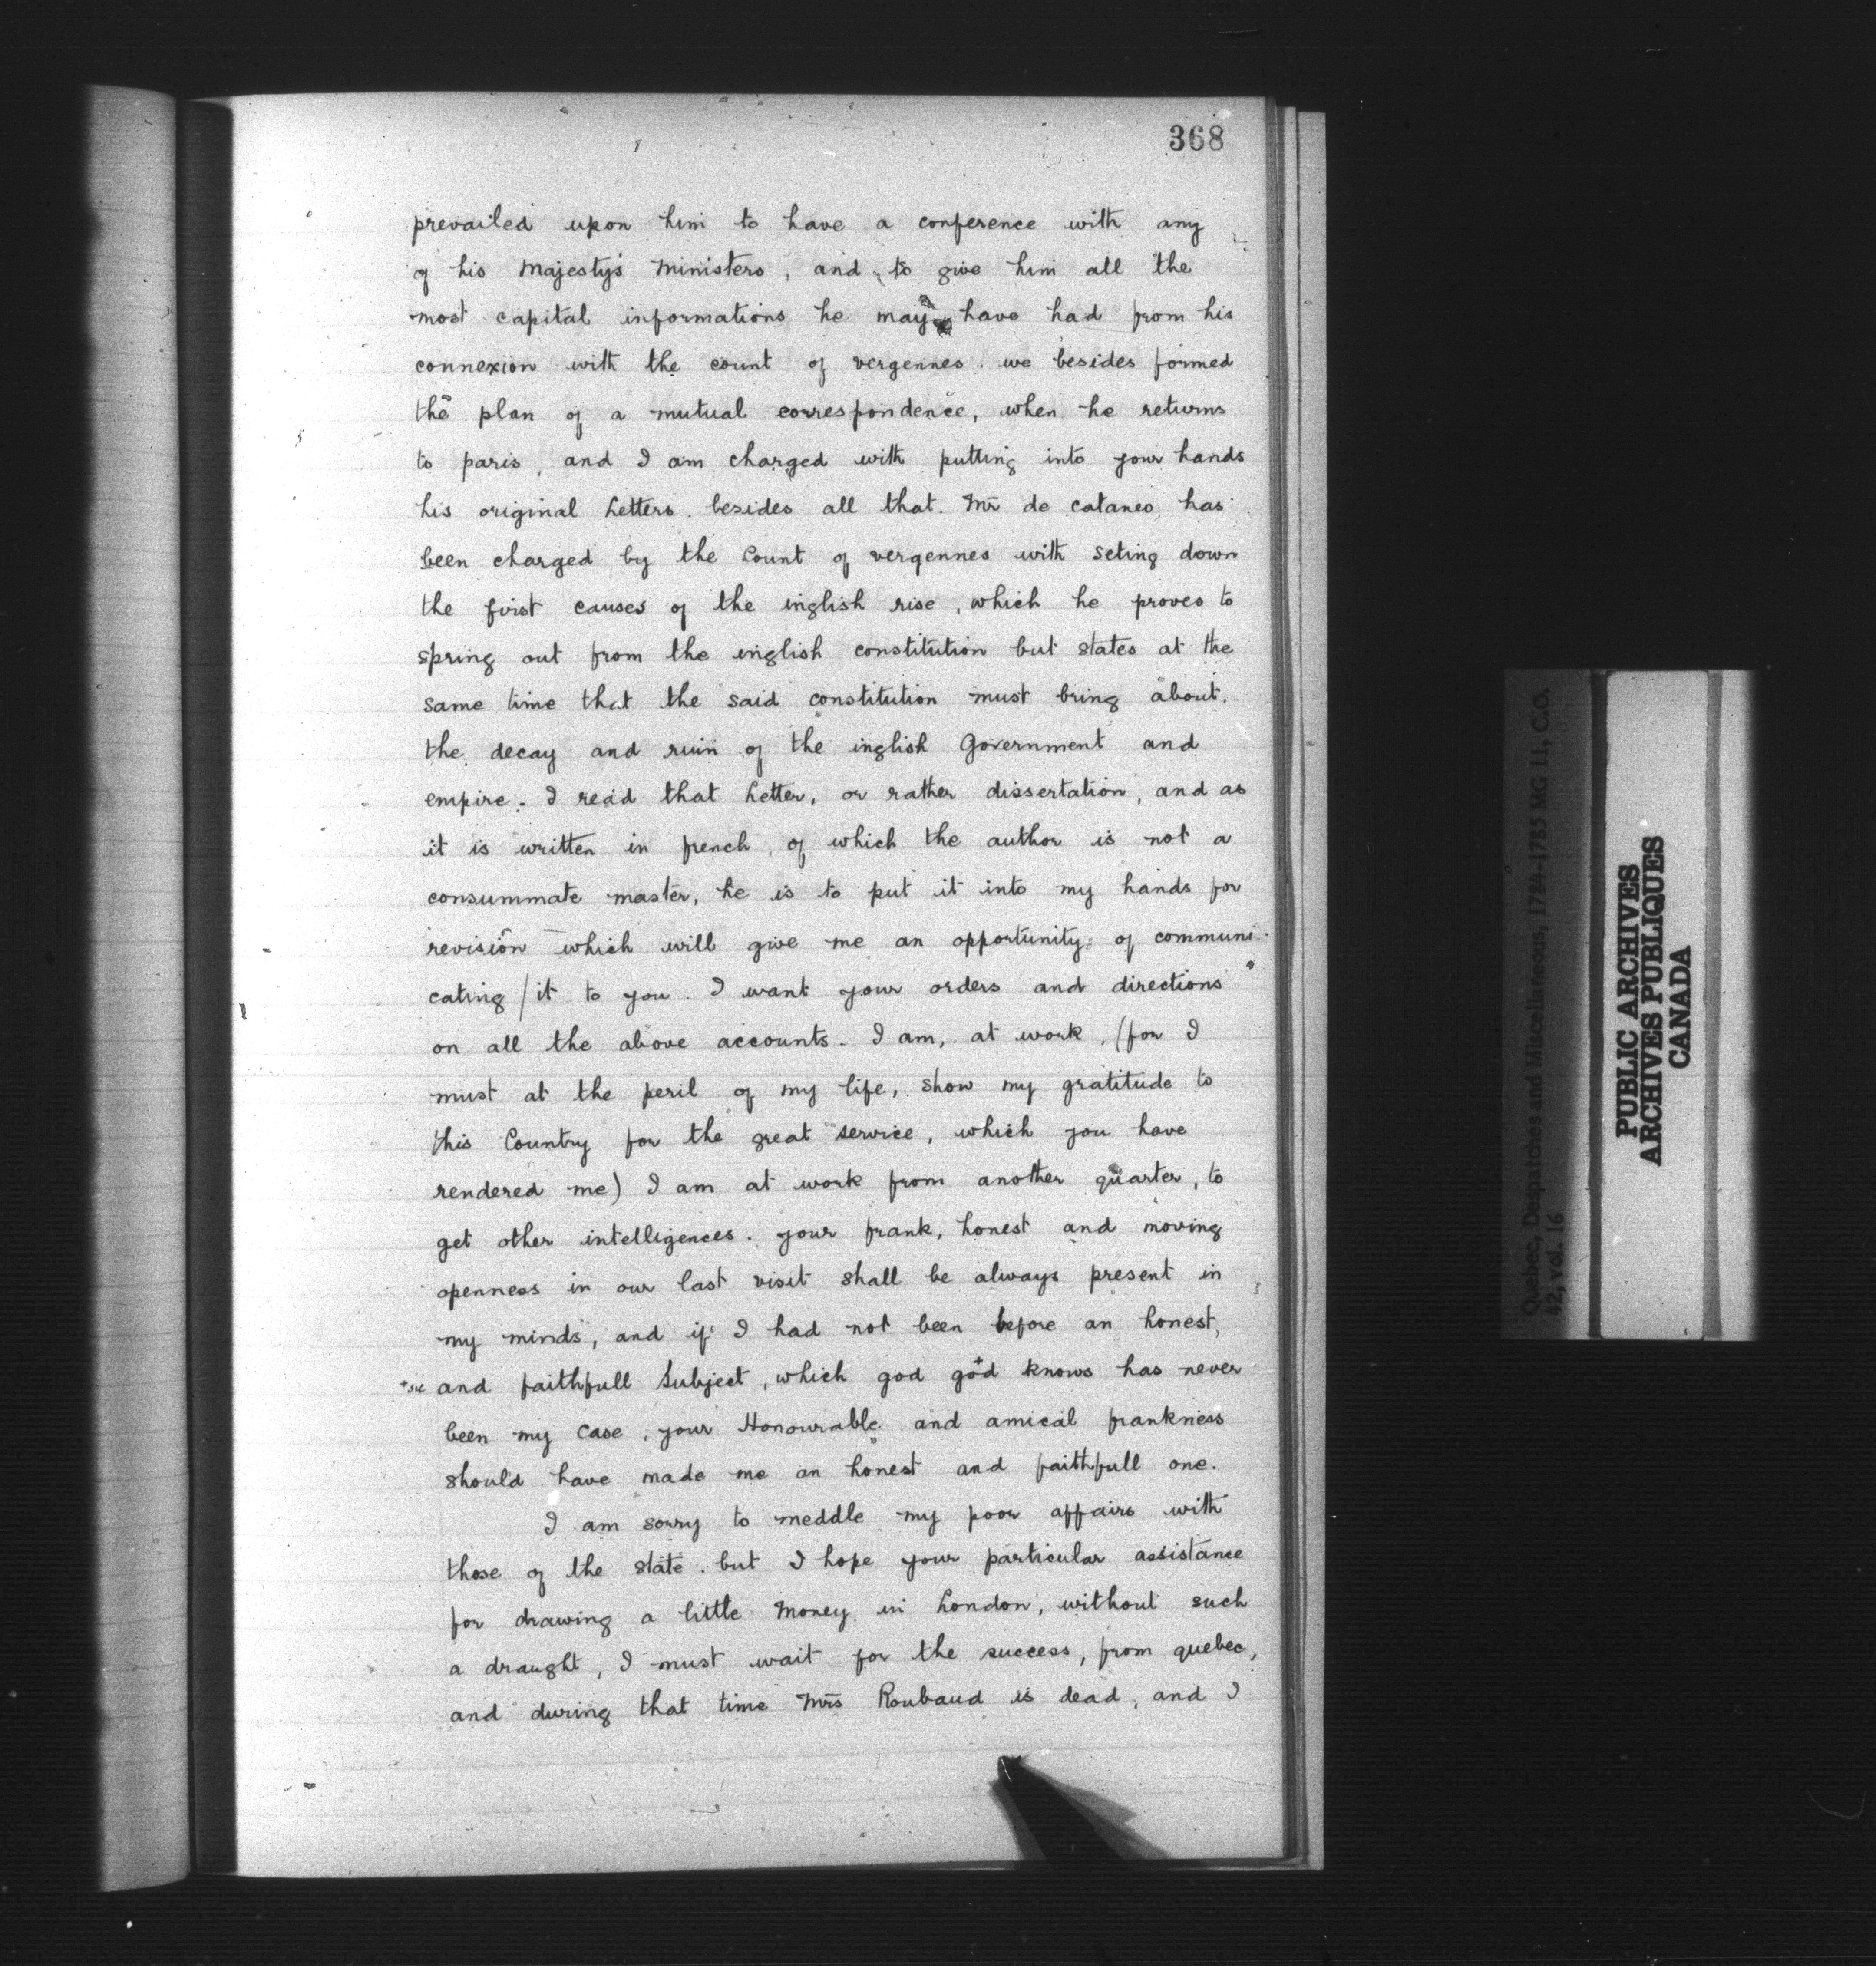 368
prevailed upon him to have a conference with any
of his Majesty's Ministers, and to give him all the
most capital informations he may have had from his
connexion with the count of vergennes. we besides formed
the plan of a mutual correspondence, when he returns
to paris, and I am charged with putting into your hands
his original Letters. besides all that. Mr de cataneo, has
been charged by the Count of vergennes with seting down
the first causes of the inglish rise, which he proves to
spring out from the english constitution but states at the
same time that the said constitution must bring about.
the decay and ruin of the inglish Government and
empire. I read that Letter, or rather dissertation, and as
it is written in french, of which the author is not a
consummate master, he is to put it into my hands for
revision which will give me an opportunity of communi-
cating / it to you. I want your orders and directions
on all the above accounts. I am, at work, (for I
must at the peril of my life, show my gratitude to
this Country for the great service, which you have
rendered me) I am at work from another quarter, to
get other intelligences. your frank, honest and moving
openness in our last visit shall be always present in
my minds, and if I had not been before an honest,
+sic and faithfull Subject, which god god+ knows has never
been my case, your Honourable and amical frankness
should have made me an honest and faithfull one.
I am sorry to meddle my poor affairs with
those of the state. but I hope your particular assistance
for drawing a little money in London, without such
a draught, I must wait for the success, from quebec,
and during that time Mrs Roubaud is dead, and I
Quebec, Despatches and Miscellaneous, 1784-1785 MG 11, C.O.
42, vol. 16
PUBLIC ARCHIVES
ARCHIVES PUBLIQUES
CANADA